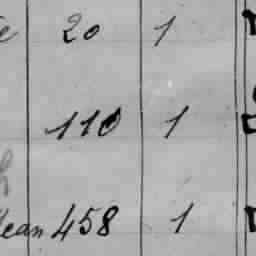 20 1
110 1
Jean 458 1